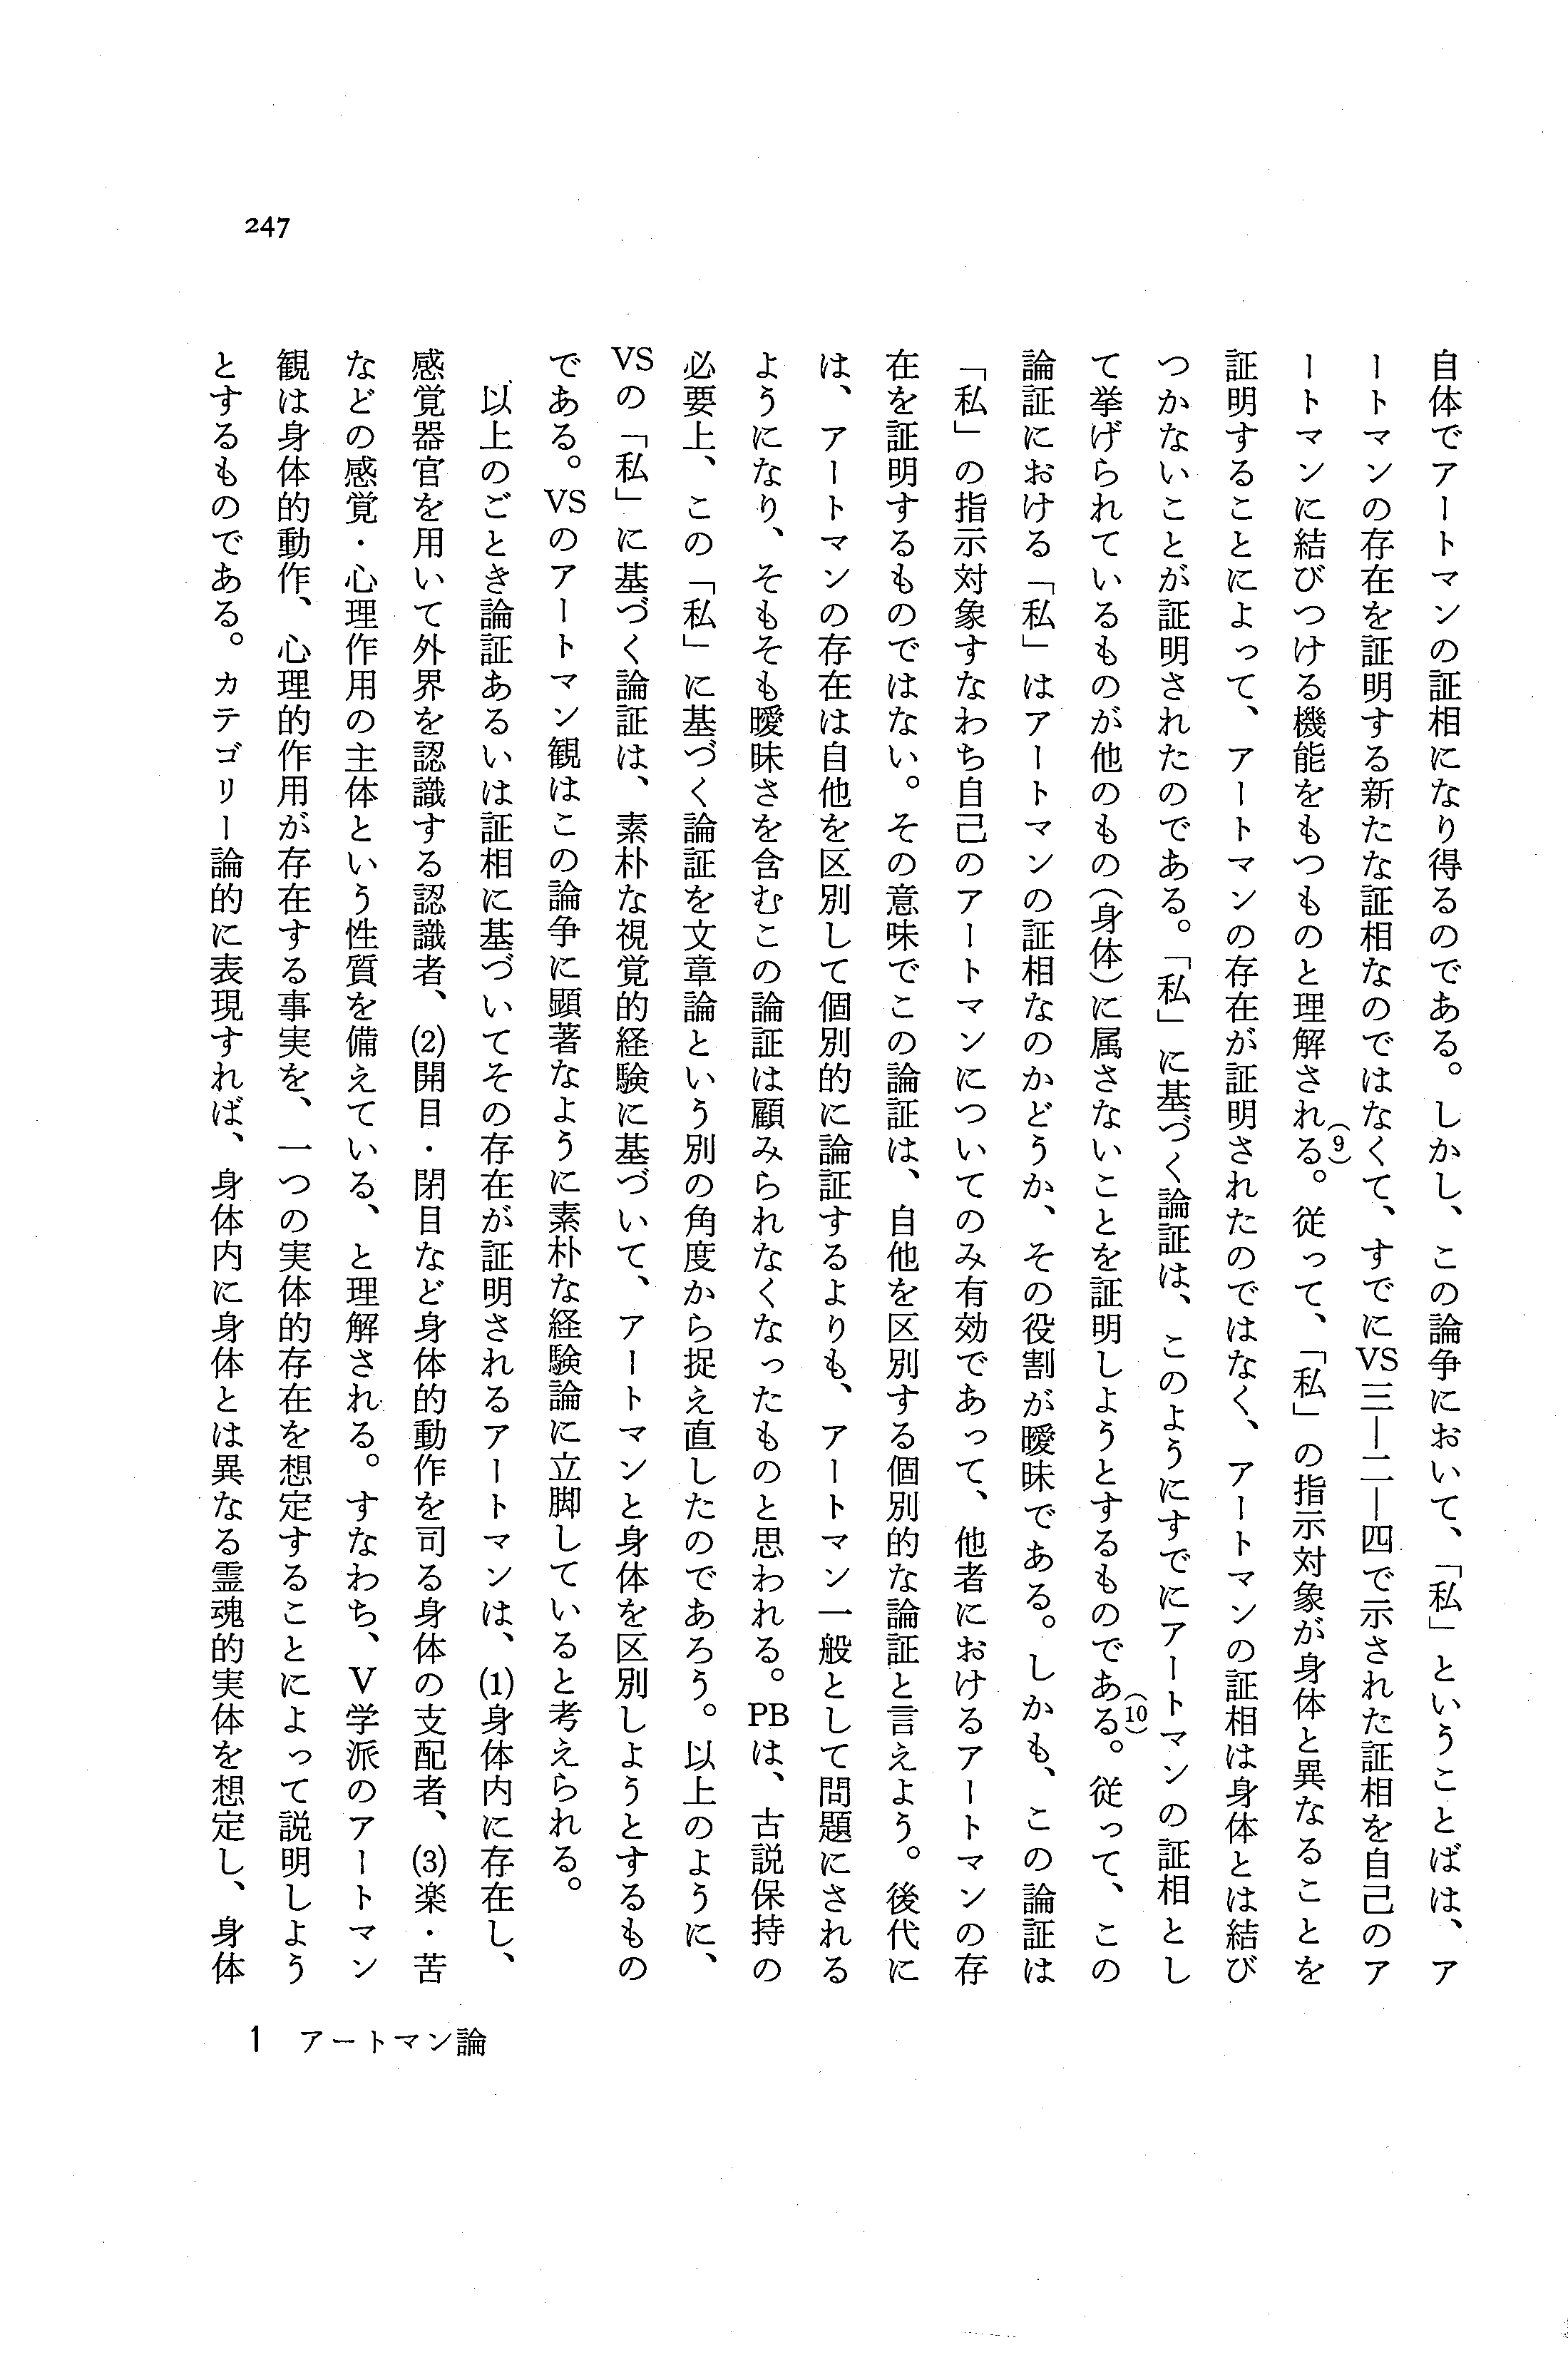 自体でアートマンの証相になり得るのである。しかし、この論争において、「私」ということばは、ア
ートマンの存在を証明する新たな証相なのではなくて、すでにVS三―二―四で示された証相を自己のア
ートマンに結びつける機能をもつものと理解される(9)。従って、「私」の指示対象が身体と異なることを
証明することによって、アートマンの存在が証明されたのではなく、アートマンの証相は身体とは結び
つかないことが証明されたのである。「私」に基づく論証は、このようにすでにアートマンの証相とし
て挙げられているものが他のもの(身体)に属さないことを証明しようとするものである(10)。従って、この
論証における「私」はアートマンの証相なのかどうか、その役割が曖昧である。しかも、この論証は
「私」の指示対象すなわち自己のアートマンについてのみ有効であって、他者におけるアートマンの存
在を証明するものではない。その意味でこの論証は、自他を区別する個別的な論証と言えよう。後代に
は、アートマンの存在は自他を区別して個別的に論証するよりも、アートマン一般として問題にされる
ようになり、そもそも曖昧さを含むこの論証は顧みられなくなったものと思われる。PBは、古説保持の
必要上、この「私」に基づく論証を文章論という別の角度から捉え直したのであろう。以上のように、
VSの「私」に基づく論証は、素朴な視覚的経験に基づいて、アートマンと身体を区別しようとするもの
である。VSのアートマン観はこの論争に顕著なように素朴な経験論に立脚していると考えられる。
以上のごとき論証あるいは証相に基づいてその存在が証明されるアートマンは、(1)身体内に存在し、
感覚器官を用いて外界を認識する認識者、(2)開目・閉目など身体的動作を司る身体の支配者、(3)楽・苦
などの感覚・心理作用の主体という性質を備えている、と理解される。すなわち、V学派のアートマン
観は身体的動作、心理的作用が存在する事実を、一つの実体的存在を想定することによって説明しよう
とするものである。カテゴリー論的に表現すれば、身体内に身体とは異なる霊魂的実体を想定し、身体
1 アートマン論
247